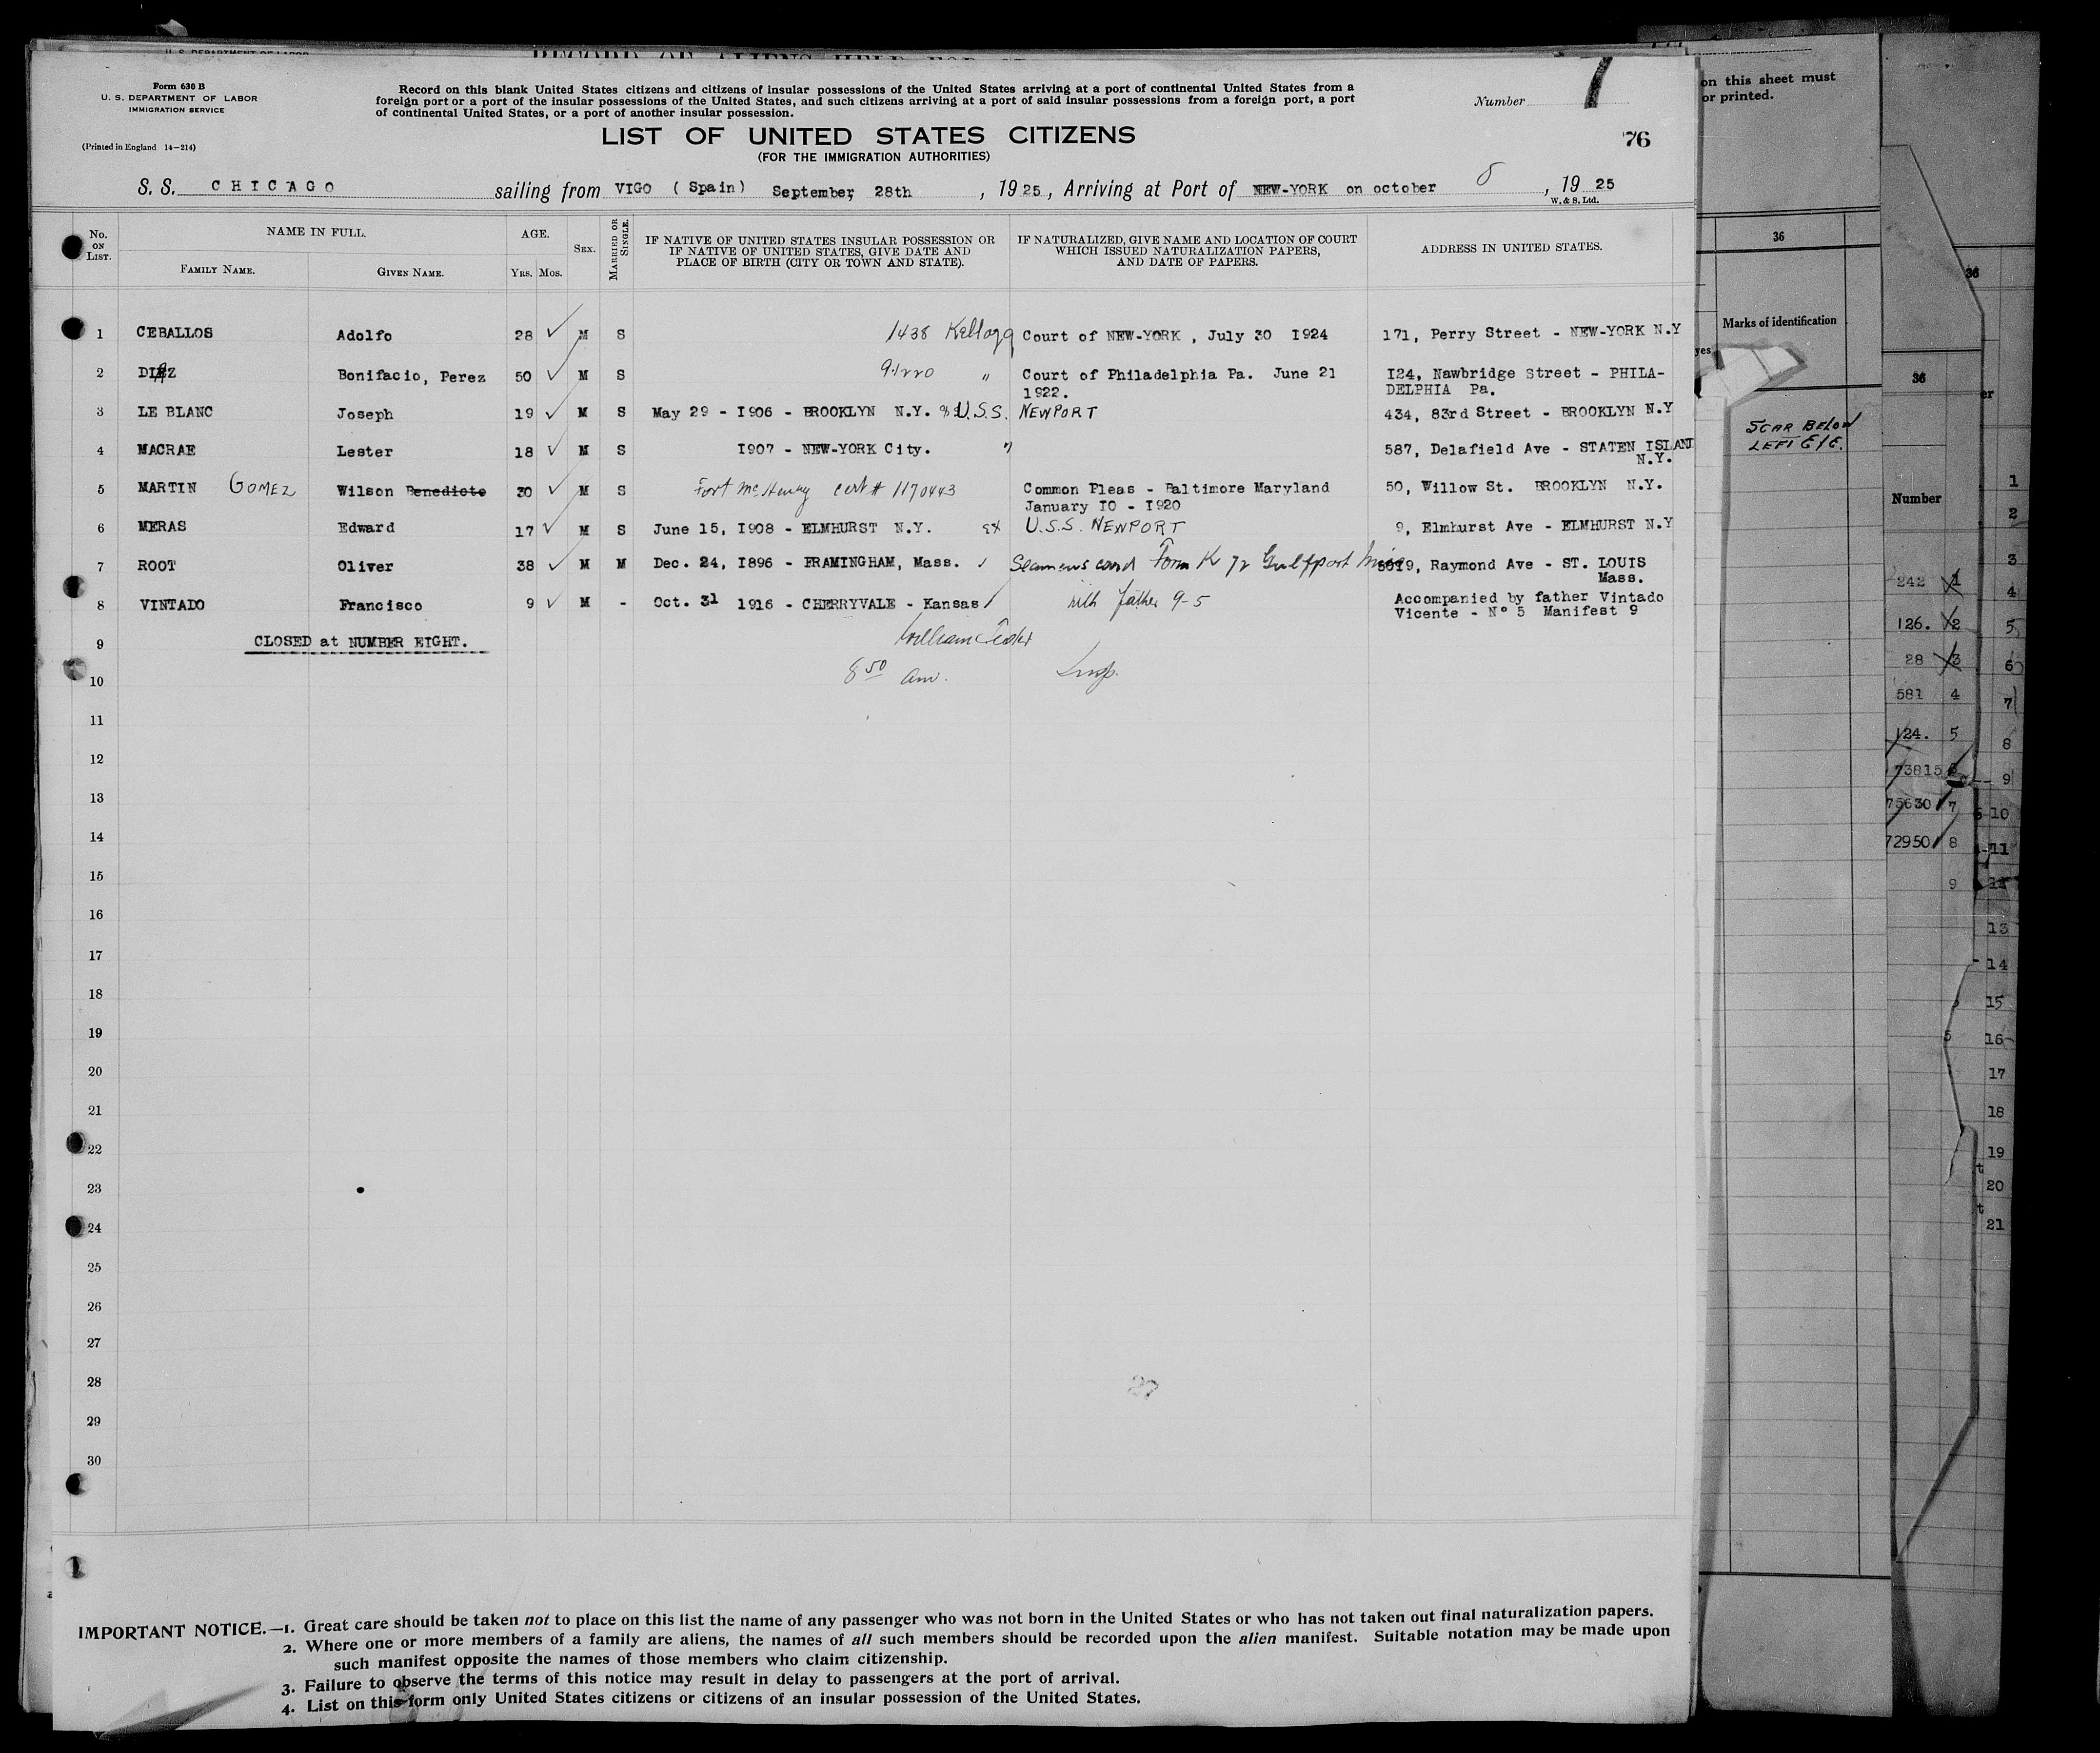 Form 630 B
U. S. DEPARTMENT OF LABOR
IMMIGRATION SERVICE
(Printed in England 14—214)
Record on this blank United States citizens and citizens of insular possessions of the United States arriving at a port of continental United States from a
foreign port or a port of the insular possessions of the United States, and such citizens arriving at a port of said insular possessions from a foreign port, a port
of continental United States, or a port of another insular possession.
Number
76
LIST OF UNITED STATES CITIZENS
(FOR THE IMMIGRATION AUTHORITIES)
S. S. CHICAGO sailing from VIGO ( Spain) September, 28th , 1925, Arriving at Port of NEW-YORK on october 8 , 19 25
W. & S. Ltd.
No. ON LIST.
NAME IN FULL.
FAMILY NAME. GIVEN NAME.
AGE.
YRS. MOS.
SEX.
MARRIED OR SINGLE.
IF NATIVE OF UNITED STATES INSULAR POSSESSION OR
IF NATIVE OF UNITED STATES, GIVE DATE AND
PLACE OF BIRTH (CITY OR TOWN AND STATE).
IF NATURALIZED, GIVE NAME AND LOCATION OF COURT
WHICH ISSUED NATURALIZATION PAPERS,
AND DATE OF PAPERS.
ADDRESS IN UNITED STATES.
1 CEBALLOS Adolfo 28 M S 1438 Kellogg Court of NEW-YORK , July 30 I924 171, Perry Street - NEW-YORK N.Y
2 Bonifacio, Perez 50 M S " Court of Philadelphia Pa. June 21 I24, Nawbridge Street - PHILA-
1922. DELPHIA Pa.
3 LE BLANC Joseph 19 M S May 29 - I906 - BROOKLYN N.Y. U.S.S. NEWPORT 434, 83rd Street - BROOKLYN N.Y
4 MACRAE Lester 18 M S I907 - NEW-YORK City. " 587, Delafield Ave - STATEN ISLAND
N.Y.
5 MARTIN GOMEZ Wilson Benedicto 30 M S Fort McHenry cert # 1170443 Common Pleas - Baltimore Maryland 50, Willow St. BROOKLYN N.Y.
January IO - I920
6 MERAS Edward 17 M S June 15, I908 - ELMHURST N.Y. U.S.S. NEWPORT 9, Elmhurst Ave - ELMHURST N.Y
7 ROOT Oliver 38 M M Dec. 24, I896 - FRAMINGHAM, Mass. Seamens card Form K Gulfport Miss , Raymond Ave - ST. LOUIS
Mass.
8 VINTADO Francisco 9 M - Oct. 31 1916 - CHERRYVALE - Kansas with father 9-5 Accompanied by father Vintado
Vicente - N° 5 Manifest 9
9 CLOSED at NUMBER EIGHT. William
10 8 50 am. Insp.
11
12
13
14
15
16
17
18
19
20
21
22
23
24
25
26
27
28
29
30
IMPORTANT NOTICE.—1. Great care should be taken not to place on this list the name of any passenger who was not born in the United States or who has not taken out final naturalization papers.
2. Where one or more members of a family are aliens, the names of all such members should be recorded upon the alien manifest. Suitable notation may be made upon
such manifest opposite the names of those members who claim citizenship.
3. Failure to observe the terms of this notice may result in delay to passengers at the port of arrival.
4. List on this form only United States citizens or citizens of an insular possession of the United States.
on this sheet must
or printed.
36
Marks of identification
yes
SCAR BELOW
LEFT EYE.
36
36
Number
242 1
126. 2
28 3
581 4
124. 5
73815
75630 7
72950 8
9
1
2
3
4
5
6
7
8
9
10
11
12
13
14
15
16
17
18
19
20
21